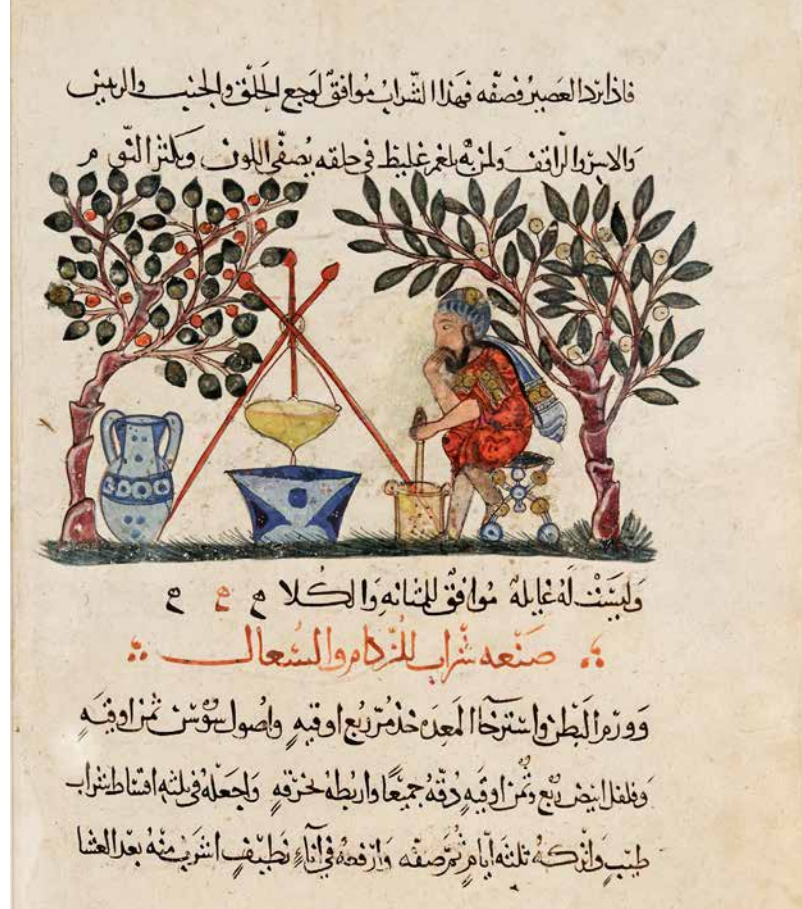 فاذا برد العصير فصفّه فهذا الشراب موافقٌ لوجع الحلق والجنب والريىن
والاسر والراقف ولمن به بلغم غليظ في حلقه يصفّي اللون ويكثر النّوم م
وليسَت له غايله موافقٌ للمثانه والكلا ح ح ح
صنعه شراب للزكام والسّعال
وورم البطن واسترخاا المعده خذ مرّ ربع اوقيهٍ واصول سَوْسن ثمن اوقيهٍ
وفلفل ابيض ربع وثمن اوقيهٍ دقّه جميعًا واربطه بخرقهٍ واجعله في ثلثه اقساط شراب
طيّبٍ واتركه ثلثه ايامٍ ثمّ صفّه وارفعه في اناءٍ نظيفٍ اشرب منه بعد العشا